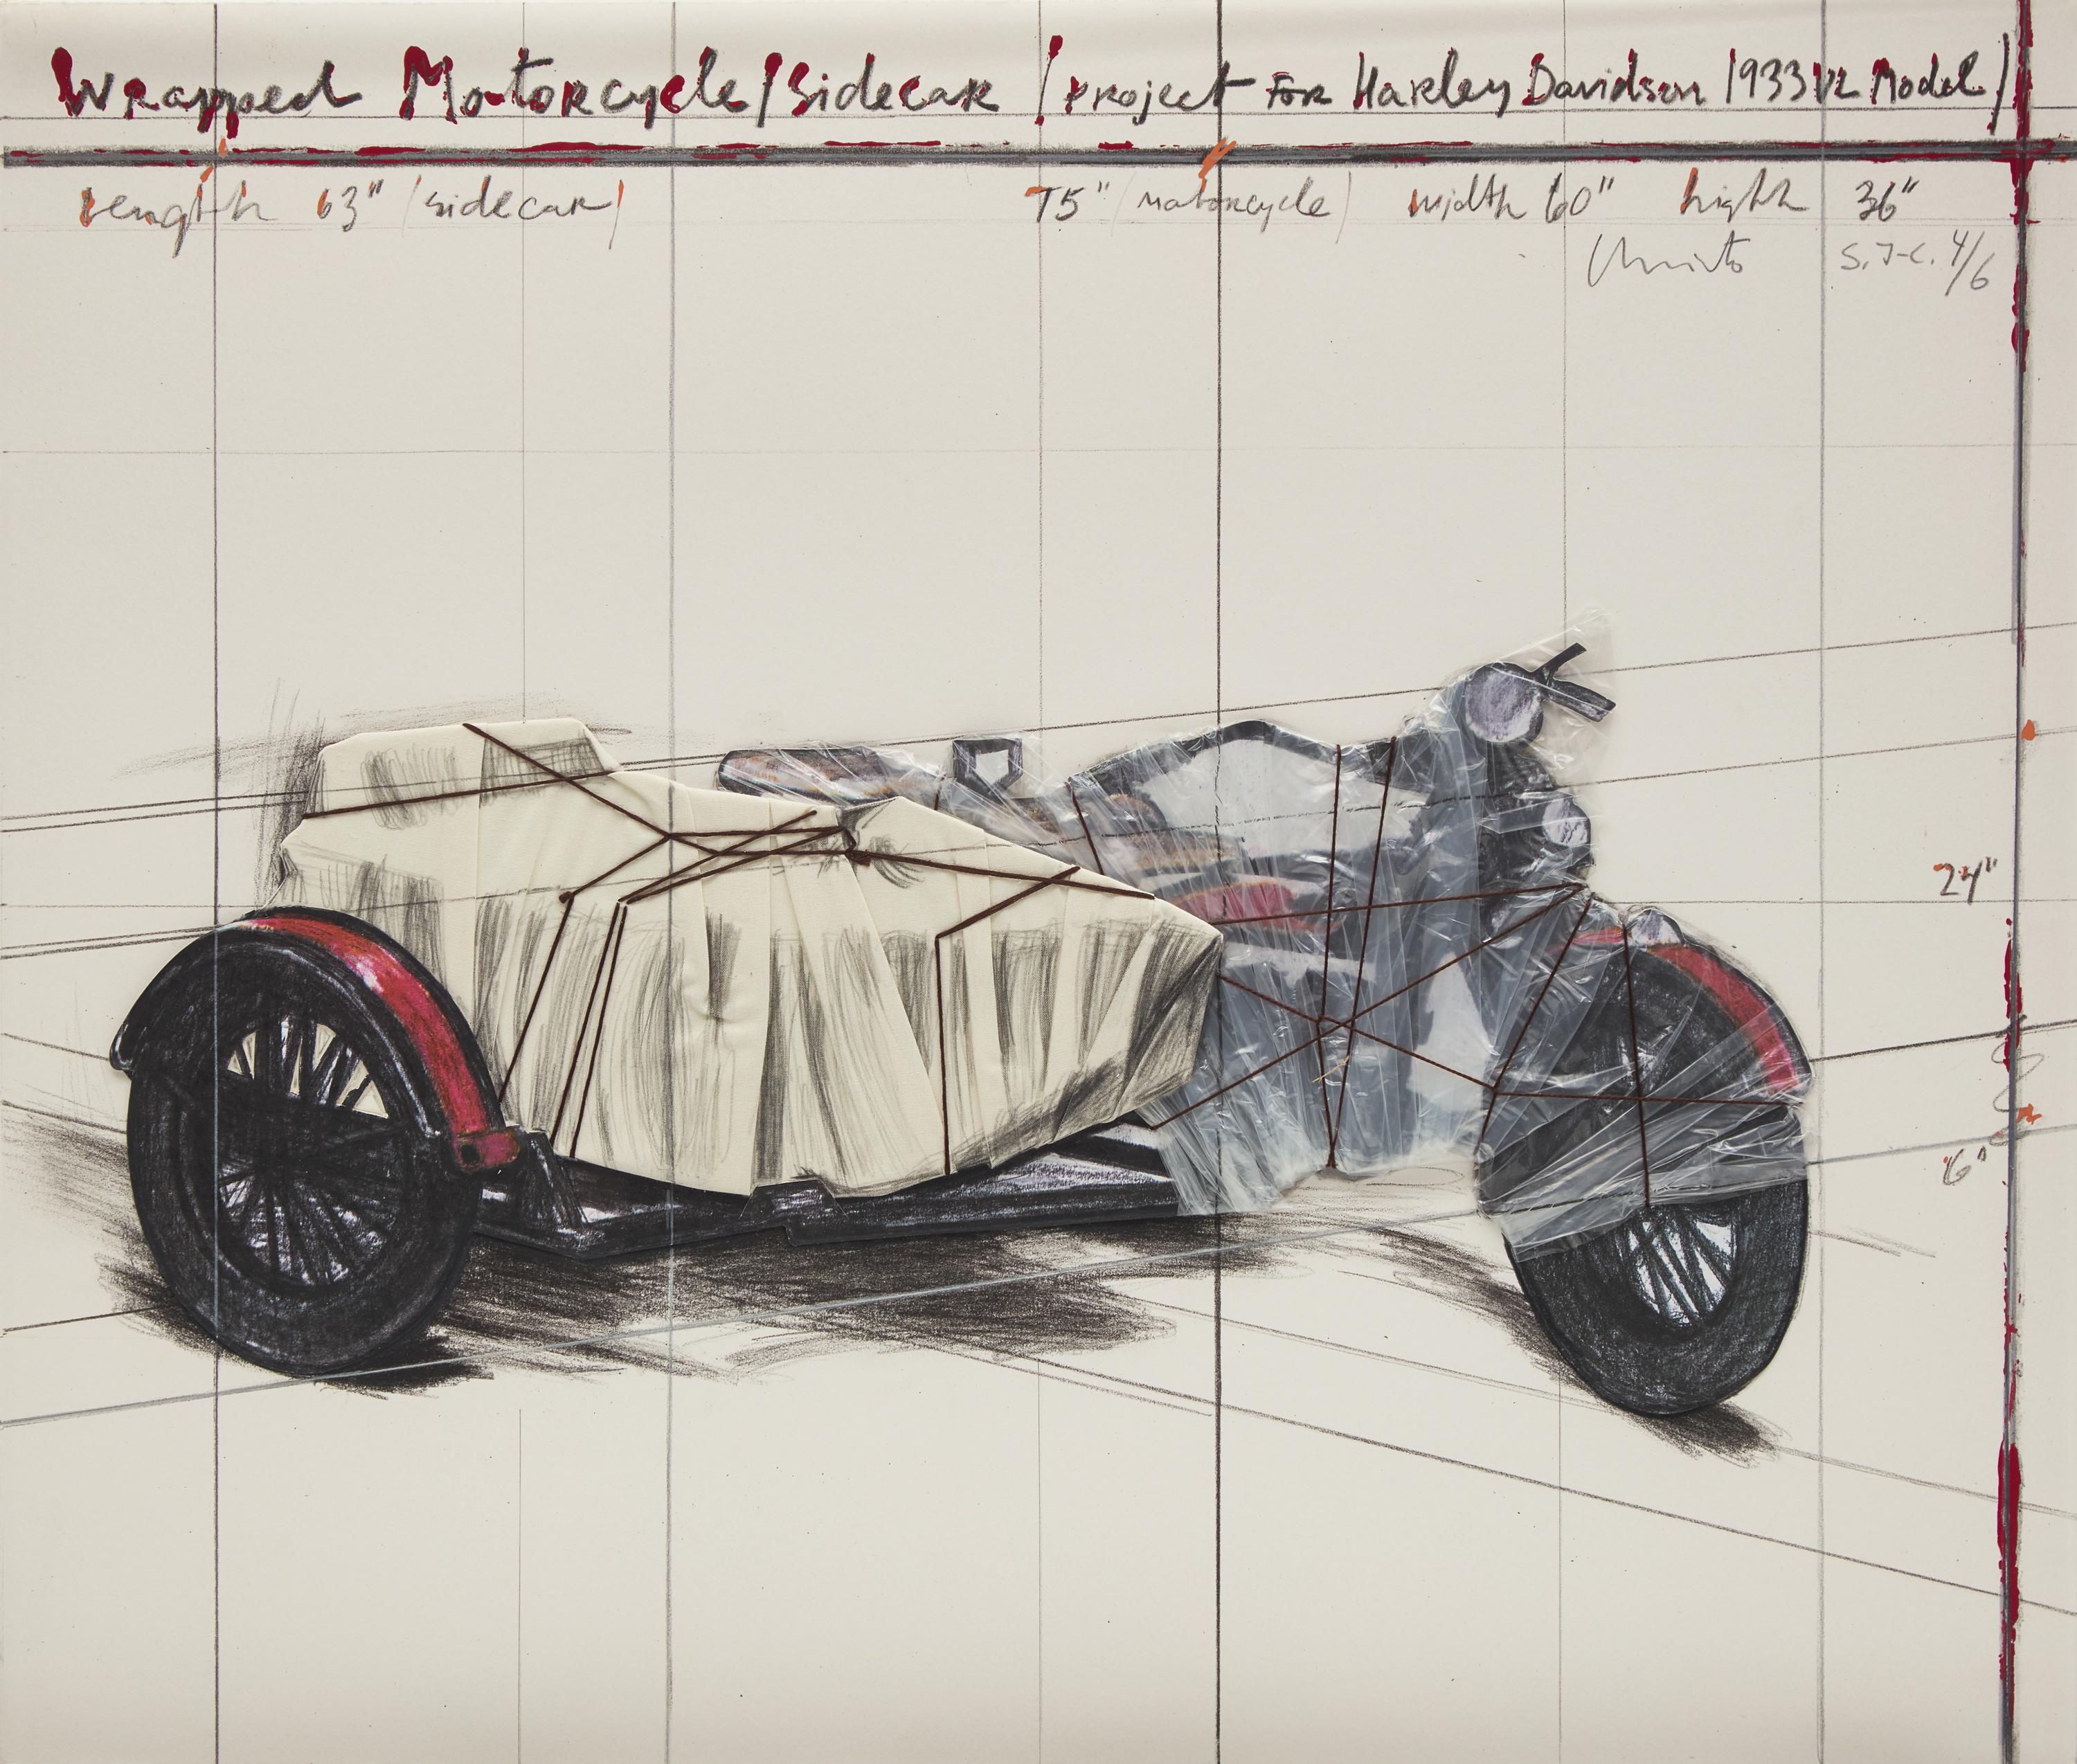 Wrapped Motorcycle/Sidecar (Project For Harley Davidson 1933 VL Model)
Length 63" (sidecar) 75" (motorcycle) width 60" highth 36"
Christo S.J-C. 4/6
24"
6"